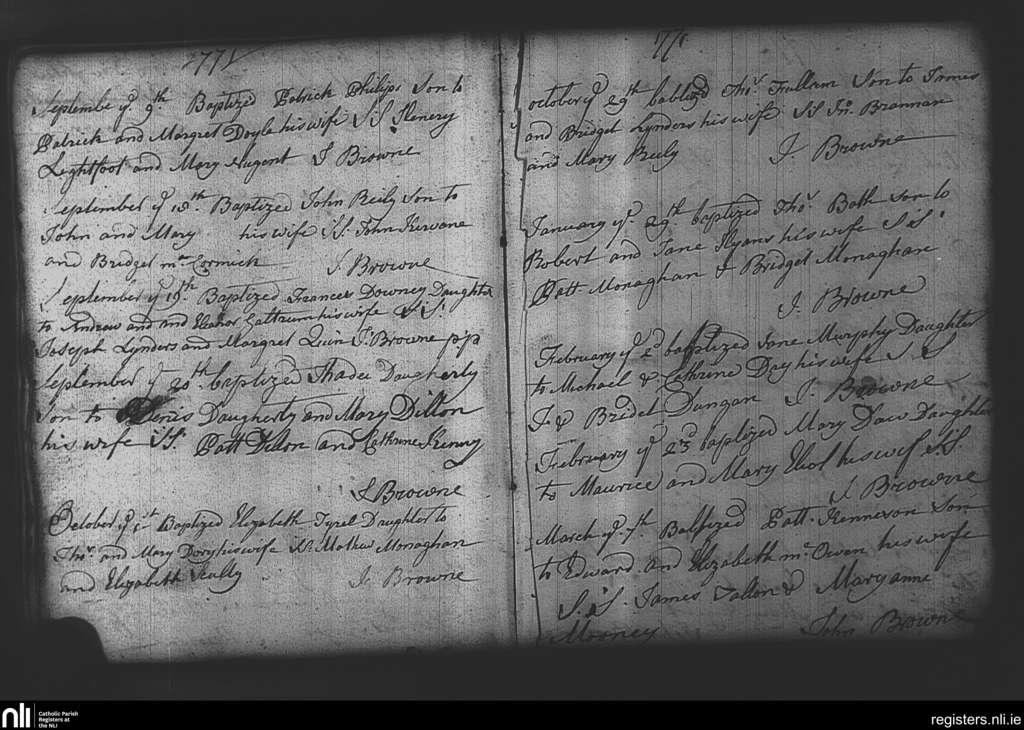 1771
September ye 9th Baptized Patrick Philips Son to
Patrick and Margret Doyle his wife SS Henery
Lightfoot and Mary Nugent J Browne
September ye 18th Baptized John Reily Son to
John and Mary his wife SS John Kerwane
and Bridget mc Cormick J Browne
September ye 19th Baptized Frances Downey Daughter
to Andrew and and Elianor his wife SS
Joseph Lynders and Margret Quin J Browne p:p
September ye 20th baptized Thadee Daugherty
Son to Denis Daugherty and Mary Dillon
his wife SS Patt Dillon and Cathrine Kenny
J Browne
October ye 1st Baptized Elizabeth Tyrel Daughter to
Thos and Mary his wife Ss Mathew Monaghan
and Elizabeth Scully J. Browne
177
october ye 29th babtized Thos Fullam Son to James
and Bridget Lynders his wife SS Jno Brannan
and Mary Reily J. Browne
January ye 29th baptized Thos Bath Son to
Robert and Jane Ryans his wife SS
Patt Monaghan & Bridget Monaghan
J. Browne
February ye 2d baptized Jane Murphy Daughter
to Michael & Cathrine Day his wife S. S
J & Bridget Dungan J. Browne
February ye 23d baptized Mary Daw Daughter
to Maurice and Mary his wife SS
J Browne
March ye 7th Baptized Patt. Son
to Edward and Elizabeth mc Owen his wife
S.S. James Tallon & Maryanne
Mooney John Browne
nli
Catholic Parish
Registers at
the NLI
registers.nli.ie